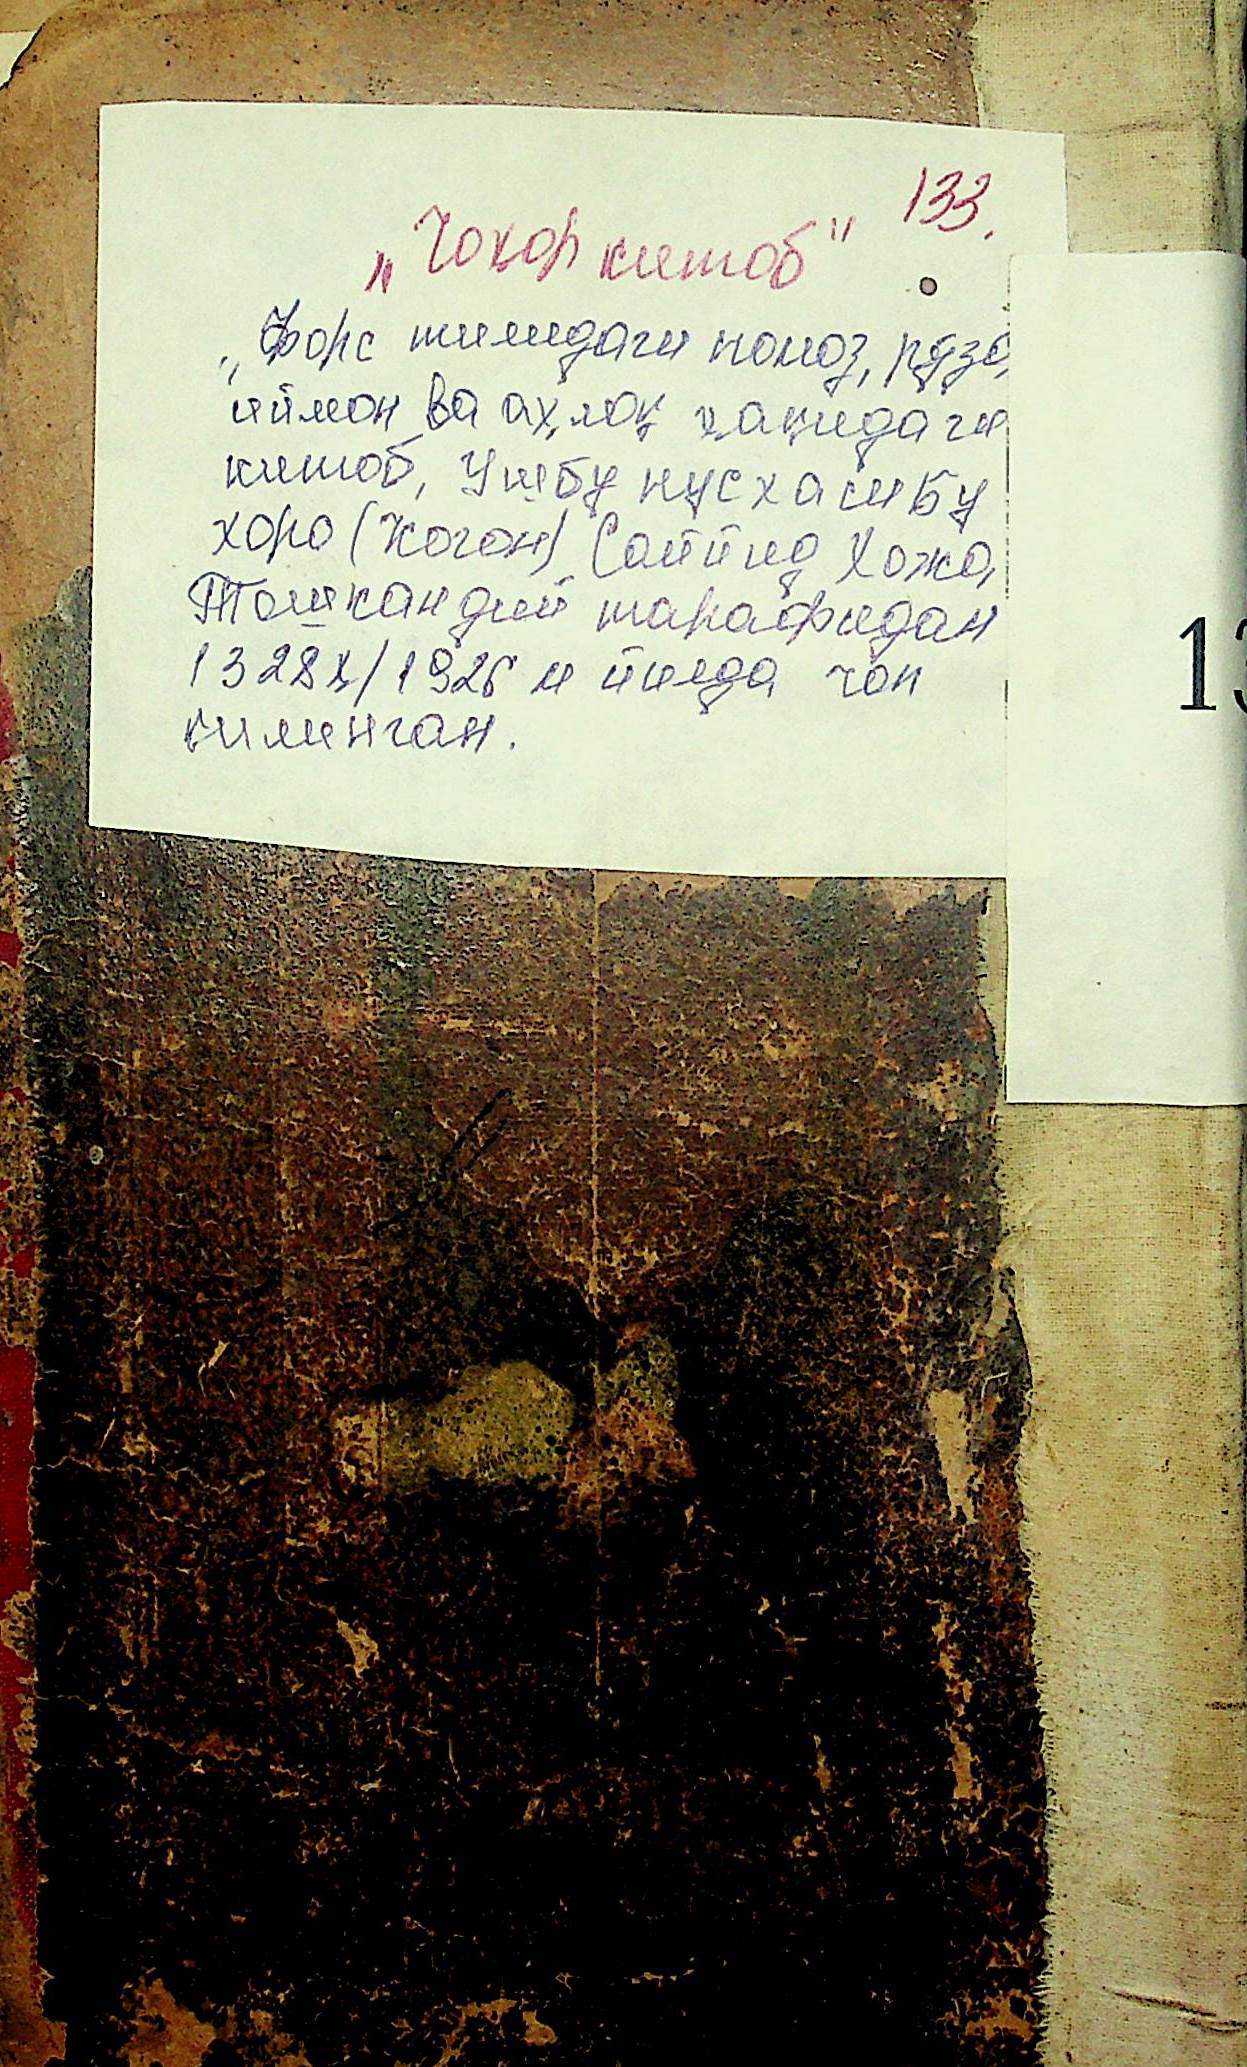 133.
„Чоҳор китоб"
„Форс тилидаги номоз, рўза,
иймон ва аҳлоқ ҳақидаги
китоб, Ушбу нусхаси Бу
хоро (Когон) Саййид Хожа,
Тошкандий тарафидан
1328ҳ/1926 м йилда чоп
қилинган.
13